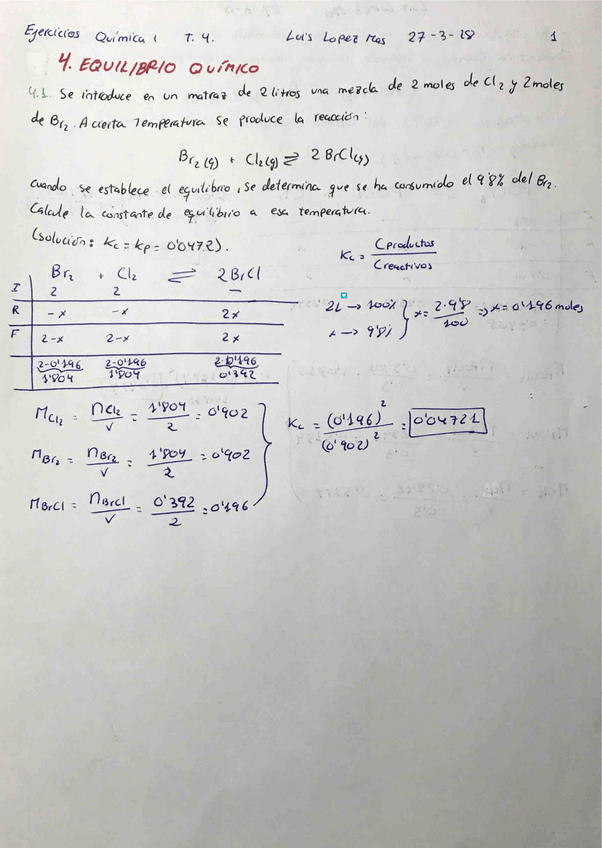 Ejercicios Química 1 T. 4. Luis Lopez Mas 27-3-18 1
4. EQUILIBRIO QUÍMICO
4.1. Se introduce en un matraz de 2 litros una mezcla de 2 moles de Cl2 y 2 moles
de Br2. A cierta Temperatura se produce la reacción:
Br2(g) + Cl2(g) ⇌ 2BrCl(g)
cuando se establece el equilibrio, se determina que se ha consumido el 9'8% del Br2.
Calcule la constante de equilibrio a esa temperatura.
(solución: Kc = Kp = 0'0472).
Kc = Cproductos / Creactivos
Br2 + Cl2 ⇌ 2BrCl
I 2 2 —
R -x -x 2x
F 2-x 2-x 2x
2-0'196 2-0'196 2·0'196
1'804 1'804 0'392
2L → 100%
x → 9'8%
x = 2·9'8 / 100 => x = 0'196 moles
MCl2 = nCl2 / V = 1'804 / 2 = 0'902
MBr2 = nBr2 / V = 1'804 / 2 = 0'902
MBrCl = nBrCl / V = 0'392 / 2 = 0'196
Kc = (0'196)² / (0'902)² = 0'04721